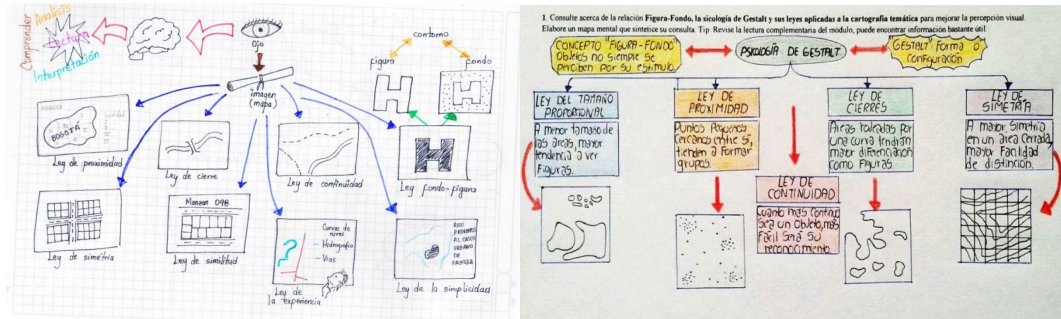 Comprender
Análisis
Lectura
Interpretación
Ojo
imagen
(mapa)
contorno
figura
fondo
BOGOTÁ
BOGOTÁ
Ley de proximidad
Ley de cierre
Ley de continuidad
Ley fondo-figura
Ley de simetria
Manzan 098
Ley de similitud
Curvas de
nivel
Hidrografia
Vias
Ley de
la experiencia
RIOS
PROXIMOS
AL CASCO
URBANO
DE
Ley de la simplicidad
1. Consulte acerca de la relación Figura-Fondo, la sicología de Gestalt y sus leyes aplicadas a la cartografía temática para mejorar la percepción visual.
Elabore un mapa mental que sintetice su consulta. Tip: Revise la lectura complementaria del módulo, puede encontrar información bastante útil.
CONCEPTO "FIGURA-FONDO"
Objetos no siempre se
perciben por su estimulo.
PSICOLOGÍA DE GESTALT
"GESTALT" Forma o
Configuración
LEY DEL TAMAÑO
PROPORCIONAL
A menor tamaño de
las áreas, mayor
tendencia a ver
Figuras.
LEY DE
PROXIMIDAD
Puntos Pequeños
cercanos entre sí,
tienden a Formar
grupos.
LEY DE
CIERRES
Áreas rodeadas por
una curva tendrán
mayor diferenciación
como Figuras.
LEY DE
SIMETRÍA
A mayor Simetría
en un área Cerrada,
mayor Facilidad
de distinción.
LEY DE
CONTINUIDAD
Cuanto más Continuo
sea un Objeto, más
Fácil será su
reconocimiento